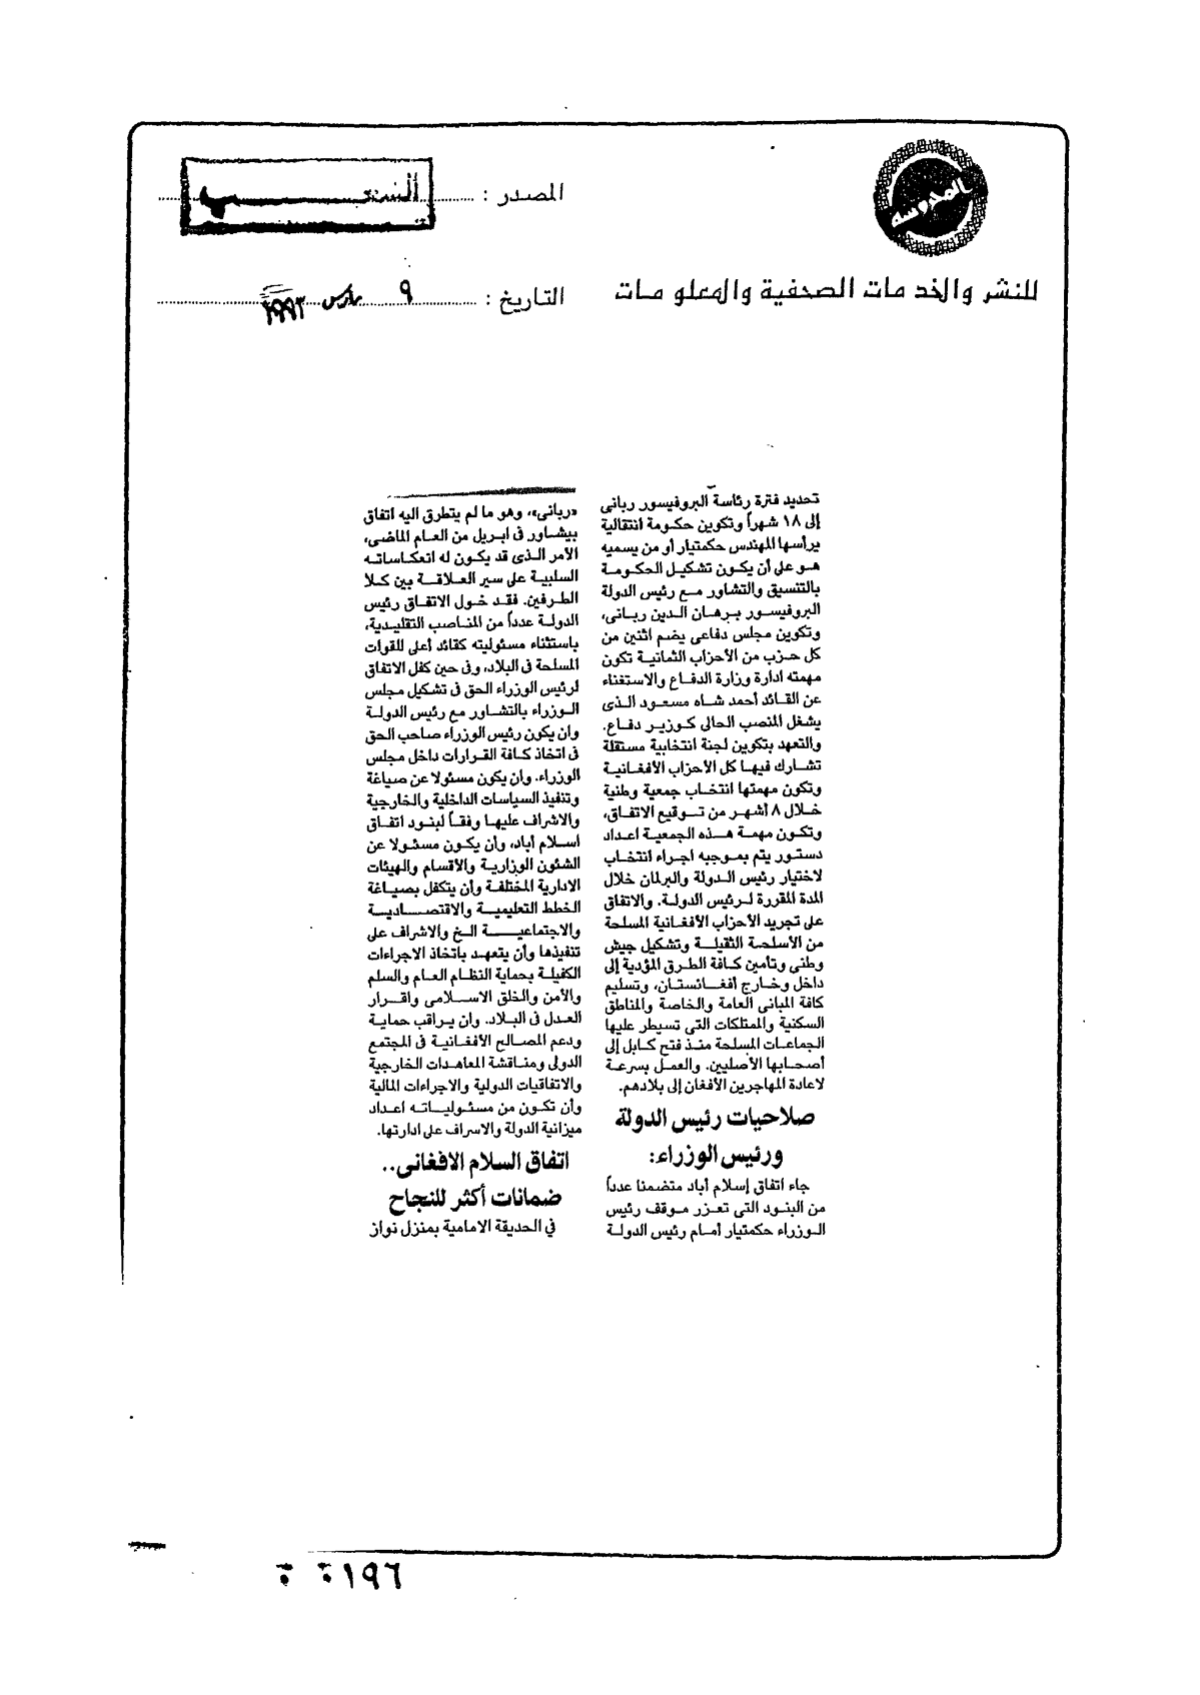 المحروسة
للنشر والخدمات الصحفية والمعلومات
المصدر : الشعب
التاريخ : ٩ مارس ١٩٩٣
تحديد فترة رئاسة البروفيسور ربانى
إلى ١٨ شهراً وتكوين حكومة انتقالية
يرأسها المهندس حكمتيار أو من يسميه
هو على أن يكون تشكيل الحكومة
بالتنسيق والتشاور مع رئيس الدولة
البروفيسور برهان الدين ربانى،
وتكوين مجلس دفاعى يضم اثنين من
كل حزب من الأحزاب الثمانية تكون
مهمته ادارة وزارة الدفاع والاستغناء
عن القائد أحمد شاه مسعود الذى
يشغل المنصب الحالى كوزير دفاع.
والتعهد بتكوين لجنة انتخابية مستقلة
تشارك فيها كل الأحزاب الأفغانية
وتكون مهمتها انتخاب جمعية وطنية
خلال ٨ أشهر من توقيع الاتفاق،
وتكون مهمة هذه الجمعية اعداد
دستور يتم بموجبه اجراء انتخاب
لاختيار رئيس الدولة والبرلمان خلال
المدة المقررة لرئيس الدولة. والاتفاق
على تجريد الأحزاب الأفغانية المسلحة
من الأسلحة الثقيلة وتشكيل جيش
وطنى وتأمين كافة الطرق المؤدية إلى
داخل وخارج أفغانستان، وتسليم
كافة المبانى العامة والخاصة والمناطق
السكنية والممتلكات التى تسيطر عليها
الجماعات المسلحة منذ فتح كابل إلى
أصحابها الأصليين. والعمل بسرعة
لاعادة المهاجرين الأفغان إلى بلادهم.
صلاحيات رئيس الدولة
ورئيس الوزراء:
جاء اتفاق إسلام أباد متضمنا عدداً
من البنود التى تعزر موقف رئيس
الوزراء حكمتيار أمام رئيس الدولة
«ربانى»، وهو ما لم يتطرق اليه اتفاق
بيشاور فى ابريل من العام الماضى،
الأمر الذى قد يكون له انعكاساته
السلبية على سير العلاقة بين كلا
الطرفين. فقد خول الاتفاق رئيس
الدولة عدداً من المناصب التقليدية،
باستثناء مسئوليته كقائد أعلى للقوات
المسلحة فى البلاد، وفى حين كفل الاتفاق
لرئيس الوزراء الحق فى تشكيل مجلس
الوزراء بالتشاور مع رئيس الدولة
وان يكون رئيس الوزراء صاحب الحق
فى اتخاذ كافة القرارات داخل مجلس
الوزراء. وان يكون مسئولا عن صياغة
وتنفيذ السياسات الداخلية والخارجية
والاشراف عليها وفقاً لبنود اتفاق
اسلام أباد، وأن يكون مسئولا عن
الشئون الوزارية والاقسام والهيئات
الادارية المختلفة وأن يتكفل بصياغة
الخطط التعليمية والاقتصادية
والاجتماعية الخ والاشراف على
تنفيذها وأن يتعهد باتخاذ الاجراءات
الكفيلة بحماية النظام العام والسلم
والأمن والخلق الاسلامى واقرار
العدل فى البلاد. وان يراقب حماية
ودعم المصالح الأفغانية فى المجتمع
الدولى ومناقشة المعاهدات الخارجية
والاتفاقيات الدولية والاجراءات المالية
وأن تكون من مسئولياته اعداد
ميزانية الدولة والاسراف على ادارتها.
اتفاق السلام الافغانى..
ضمانات أكثر للنجاح
فى الحديقة الامامية بمنزل نواز
١٩٦